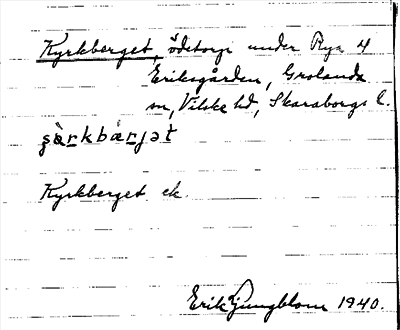 Kyrkberget, ödetorp under Rya 4
Eriksgården, Grolanda
sn, Vilske hd, Skaraborgs l.
Kyrkberget ek.
Erik Ljungblom 1940.